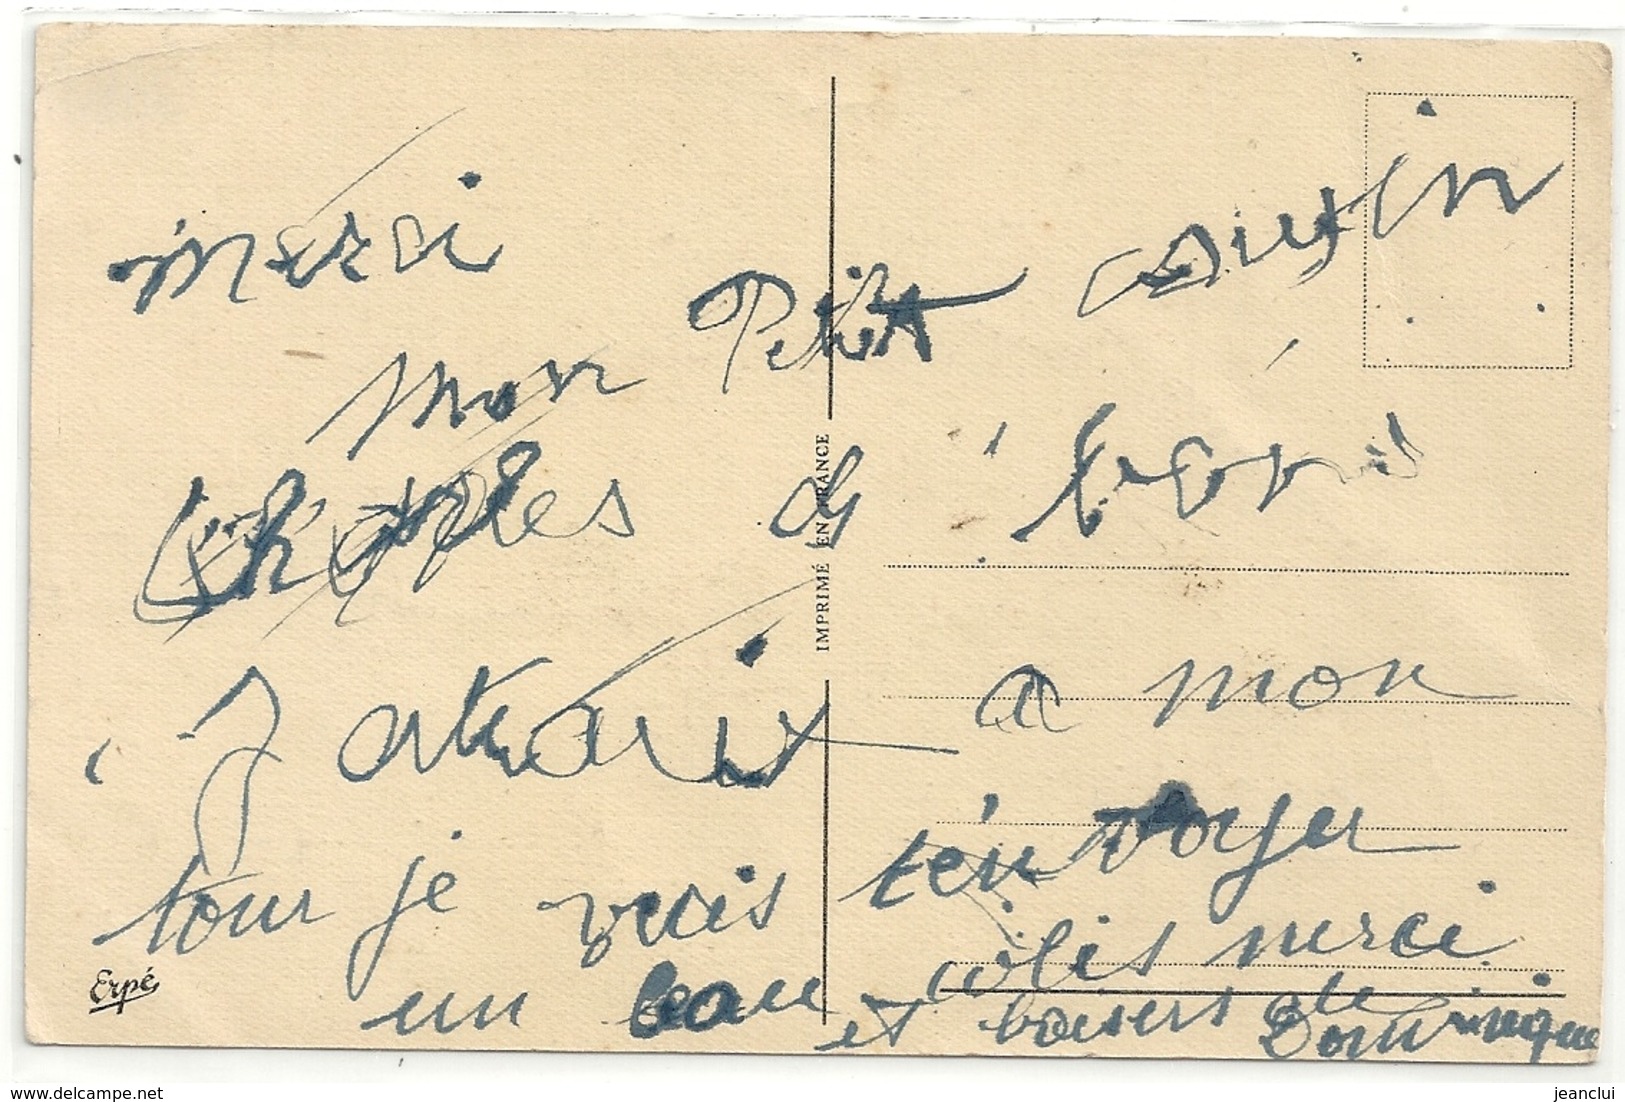 merci
mon Petit cousin
Charles
a mon
tour je vais t'envoyer
un beau colis merci
et baisers de
Dominique
IMPRIMÉ EN FRANCE
Erpé
delcampe.net
jeanclui